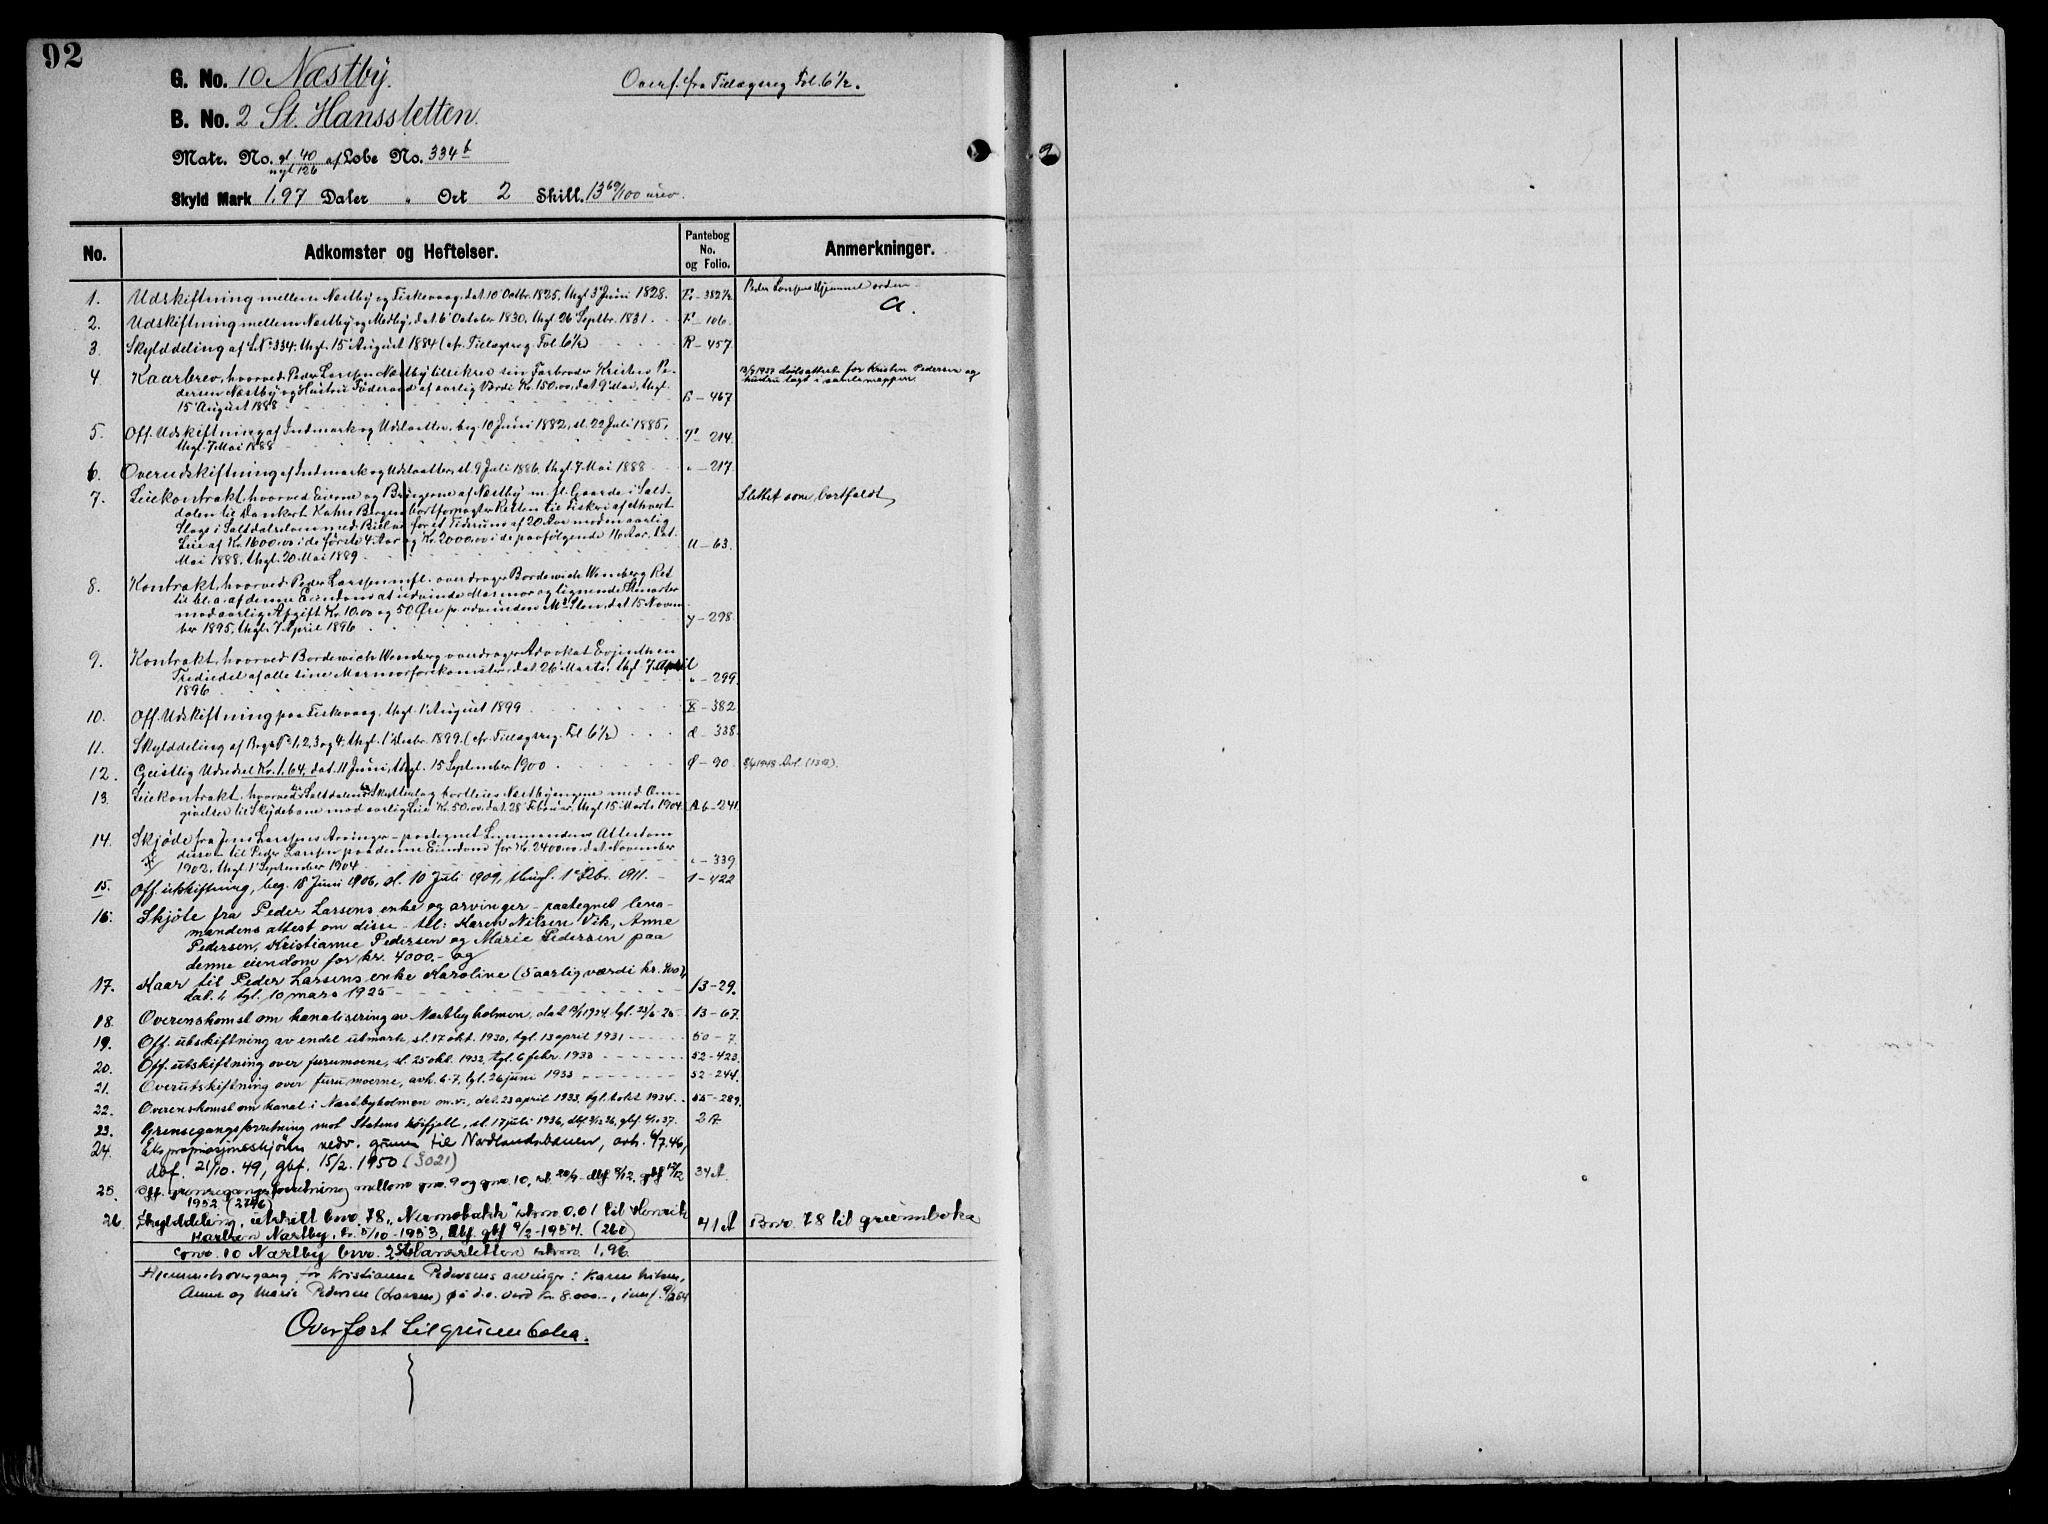 92
G. No. 10 Næstby.
Overf. fra Tillægsreg Fol. 6 1/2.
B. No. 2 St. Hansstetten.
Matr. No. gl. 40 nyt 126 af Løbe No. 334 b
Skyld Mark 1,97 Daler " Ort 2 Skill. 13 69/100
No. Adkomster og Heftelser. Pantebog No. og Folio. Anmerkninger.
1. Udskiftning mellem Næstby og Fiskevaag, dat. 10 Octbr. 1825, thgl. 3 Juni 1828. E - 382 1/2 Peder Larsens Hjemmel orden
a.
2. Udskiftning mellem Næstby og Medby, dat. 6 October 1830, thgl. 26 Septbr. 1831. F - 106.
3. Skylddeling af L No 334, thgl. 15 August 1884 (cfr. Tillægsreg. Fol. 6 1/2) R - 457.
4. Kaarbrev, hvorved Peder Larssen Næstby tilsikres sin Farbroder Kristen Pe- 1937 dødsattester for Kristen Pedersen og
dersen Næstby og Hustru Føderaad af aarlig Værdi Kr. 150,00, dat. 9 Mai, thgl. hustru lagt i samlemappen.
15 August 1888 - 467.
5. Off. Udskiftning af Indmark og Udslaatter, beg. 10 Juni 1882, sl. 22 Juli 1885,
thgl. 7 Mai 1888 T - 214.
6. Overudskiftning af Indmark og Udslaatter, sl. 9 Juli 1886, thgl. 7 Mai 1888 " - 217.
7. Leiekontrakt, hvorved Eierne og Brugerne af Næstby m. fl. Gaarde i Salt- Slettet som bortfaldt
dalen til Dankert Kahrs Bergen bortforpagter Retten til Fiskeri af ethvert
Slags i Saltdalselven med Bielve for et Tidsrum af 20 Aar mod en aarlig
Leie af Kr. 1600,00 i de første 4 Aar og Kr. 2000,00 i de paafølgende 16 Aar, dat.
Mai 1888, thgl. 20 Mai 1889. U - 63.
8. Kontrakt, hvorved Peder Larssen m fl. overdrager Bordewich Wemberg Ret
til bl. a. af denne Eiendom at udvinde Marmor og lignende Stenarter
mod aarlig Afgift Kr. 10,00 og 50 Øre pr. udvunden M3 Sten, dat. 15 Novem-
ber 1895, thgl. 7 April 1896 y - 298.
9. Kontrakt, hvorved Bordewich Wemberg overdrager Advokat Evjenthen
Trediedel af alle sine Marmorforekomster, dat. 26 Marts, thgl. 7 April
1896 " - 299.
10. Off. Udskiftning paa Fiskevaag, thgl. 1 August 1899 - 382
11. Skylddeling af Brgs No 1, 2, 3 og 4, thgl. 1 Desbr. 1899. (cfr. Tillægsreg. Fol 6 1/2) - 338.
12. Geistlig Udsedsel Kr. 1,64, dat. 11 Juni, thgl. 15 September 1900 Ø - 90. 1948 Avl. (1319).
13. Leiekontrakt, hvorved Saltdalens Skytterlag bortleies Næstbyengene med Om-
givelser til Skydebane mod aarlig Leie Kr. 50,00, dat. 28 Februar, thgl. 15 Marts 1904. A6 - 241.
14. Skjøde fra Jens Larssens Arvinger - paategnet Lensmandens Attest om
disse - til Peder Larssen paa denne Eiendom for Kr. 2400,00, dat. November
1902, thgl. 1 September 1904 " - 339
15. Off. utskiftning, beg. 18 Juni 1906, sl. 10 Juli 1909, thingl. 1 Dbr. 1911. 1 - 422
16. Skjøte fra Peder Larsens enke og arvinger - paategnet lens-
mandens attest om disse - til: Karen Nilsen Vik, Anne
Pedersen, Kristianne Pedersen og Marie Pedersen paa
denne eiendom for kr. 4000.- og
17. Kaar til Peder Larsens enke Karoline (5 aarlig værdi kr.
dat. & tgl. 10 mars 1925 13 - 29.
18. Overenskomst om kanalisering av Næstbyholmen, dat 1924, tgl. 23/6-25 - 13 - 67.
19. Off. utskiftning av endel utmark, sl. 17 okt. 1930, tgl. 13 april 1931 50 - 7.
20. Off. utskiftning over furumoene, sl. 25 okt. 1932, tgl. 6 febr. 1933 52 - 423.
21. Overutskiftning over furumoerne, avh. 6-7, tgl. 26 juni 1933 52 - 244.
22. Overenskomst om kanal i Næstbyholmen m.v., dat. 23 april 1933, tgl. 6 okt 1934. 55 - 289.
23. Grensegangsforretning mot Statens høifjell, sl. 17 juli 1936, dbf. 3/12 36, gbf. 4/1 37. 2 A.
24. Ekspropriasjonsskjøte vedr. grunn til Nordlandsbanen, avh. 6/7.46,
dbf. 21/10. 49, gbf. 15/2. 1950 (3021) 34 A.
25. Off. grensegangsforretning mellom gno. 9 og gno. 10, sl. 20/9 - dbf 8/12, gbf 12/12
1952 (2746)
26. Skylddeling, utskilt bnr. 78 "Nermobakk" skm 0.01 til Henrik 41 A Bnr. 78 til grunnboka
Karlsen Næstby, av. 5/10-1953, dbf. gbf 9/2-1954. (260)
Gnr. 10 Næstby bnr. 2 St. Hansstetten skm 1,96.
Hjemmelsovergang for Kristianne Pedersens arvinger: Karen Nilsen,
Anne og Marie Pedersen (Larsen) på d.o. verd kr. 8.000.-
Overført til grunnboka.